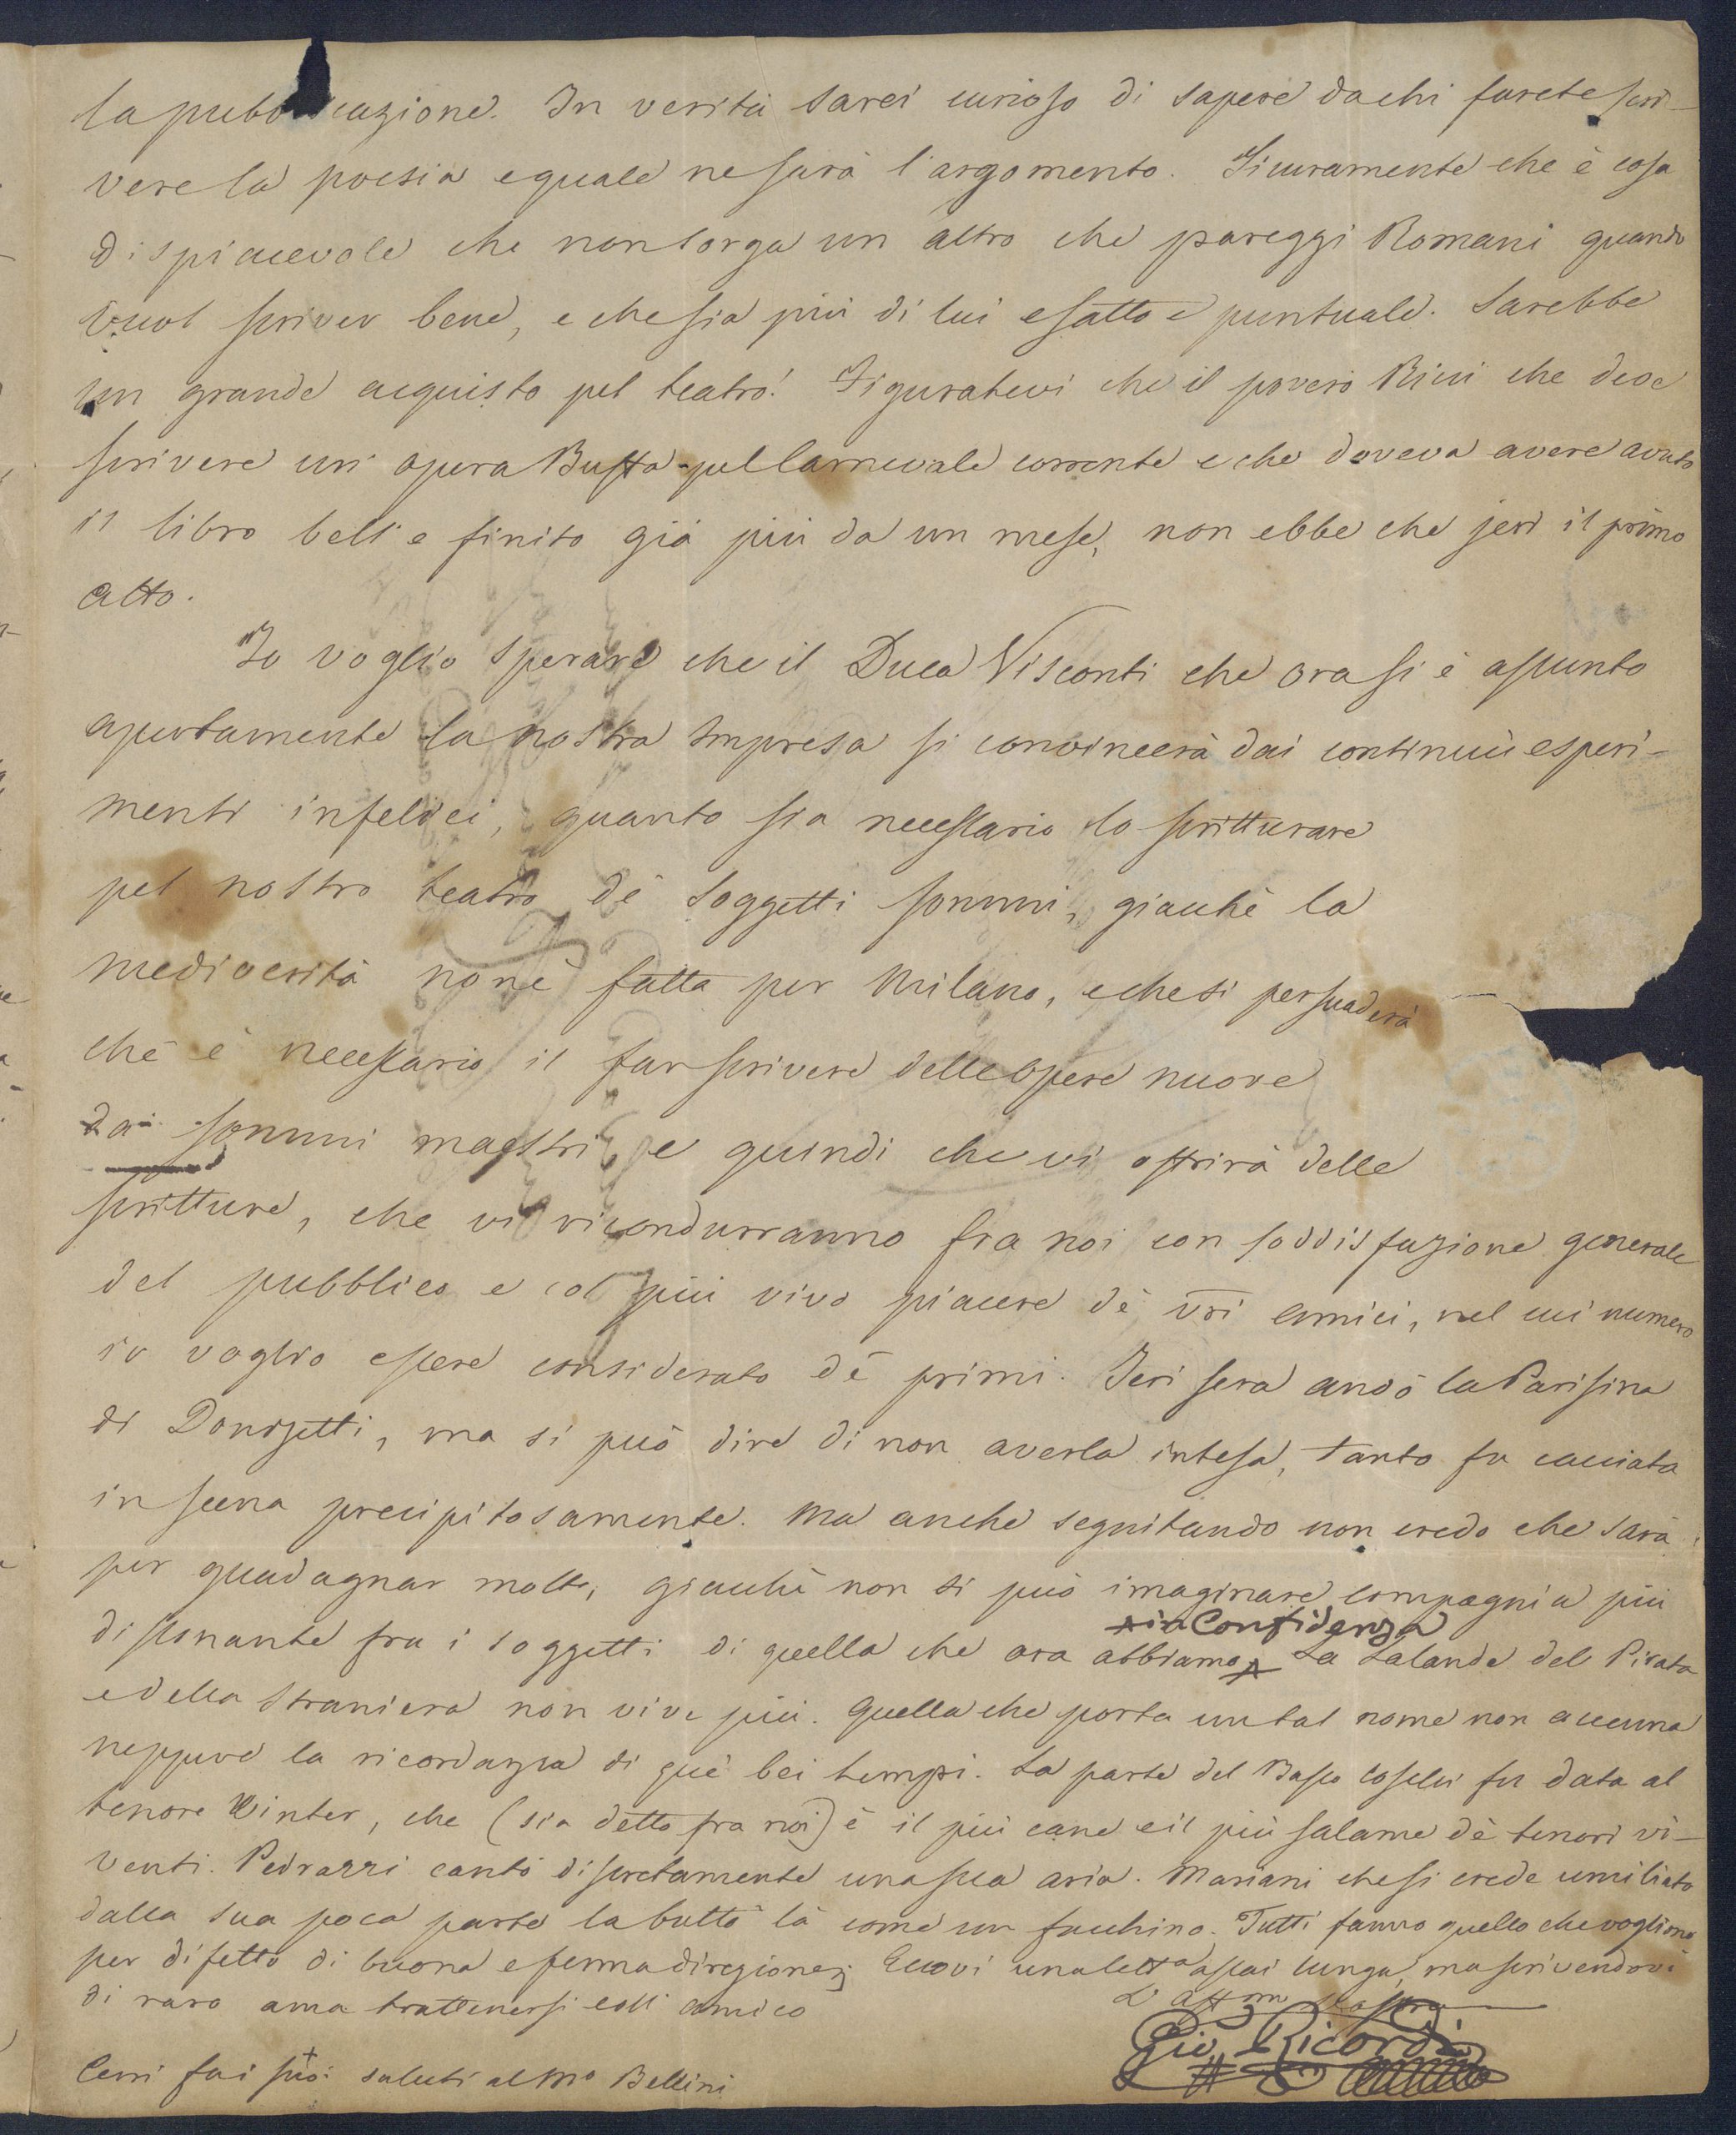 la pubblicazione. In verità sarei curioso di sapere da chi farete scri-
vere la poesia e quale ne sarà l'argomento. Sicuramente che è cosa
dispiacevole che non sorga un altro che pareggi Romani quando
vuol scriver bene, e che sia più di lui esatto e puntuale. Sarebbe
un grande acquisto pel teatro! Figuratevi che il povero Ricci che deve
scrivere un' opera Buffa pel Carnevale corrente e che doveva avere avuto
il libro bell'e finito già più da un mese, non ebbe che jeri il primo
atto.
Io voglio sperare che il Duca Visconti che ora si è assunto
apertamente la nostra Impresa si convincerà dai continui esperi-
menti infelici, quanto sia necessario lo scritturare
pel nostro teatro dè soggetti sommi, giacchè la
mediocrità non è fatta per Milano, e che si persuaderà
che è necessario il far scrivere delle opere nuove
da sommi maestri e quindi che vi offrirà delle
scritture, che vi ricondurranno fra noi con soddisfazione generale
del pubblico e col più vivo piacere dè vri amici, nel cui numero
io voglio essere considerato dè primi. Jeri sera andò la Parisina
di Donizetti, ma si può dire di non averla intesa, tanto fu cacciata
in scena precipitosamente. Ma anche seguitando non credo che sarà
per guadagnar molto, giacchè non si può imaginare compagnia più
in Confidenza
dissonante fra i soggetti di quella che ora abbiamo La Lalande del Pirata
e della Straniera non vive più. Quella che porta un tal nome non accenna
neppure la ricordanza di què bei tempi. La parte del Basso Coselli fu data al
tenore Winter, che (sia detto fra noi) è il più cane e il più salame dè tenori vi-
venti. Pedrazzi cantò discretamente una sua aria. Mariani che si crede umiliato
dalla sua poca parte la buttò là come un facchino. Tutti fanno quello che vogliono
per difetto di buona e ferma direzione. Eccovi una letta assai lunga, ma scrivendovi
di raro ama trattenersi coll' amico
L'affmo vostro
Gio Ricordi
Cerri fa i suoi saluti al Mo Bellini